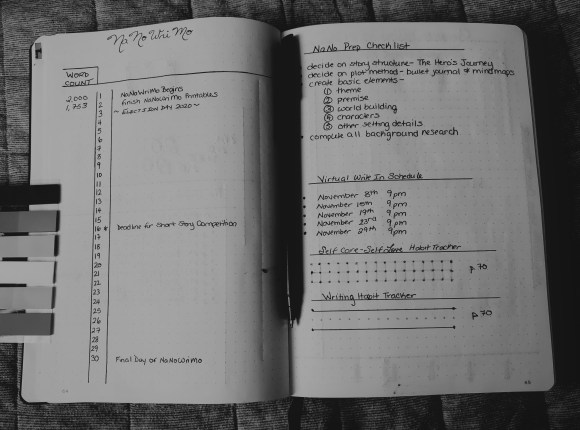 NaNoWriMo
WORD COUNT
2,000 1 NaNoWriMo Begins
1,753 2 finish NaNoWriMo Printables
3 ~ Election Day 2020 ~
4
5
6
7
8
9
10
11
12
13
14
15
16 * Deadline for Short Story Competition
17
18
19
20
21
22
23
24
25
26
27
28
29
30 Final Day of NaNoWriMo
NaNo Prep Checklist
decide on story structure - The Hero's Journey
decide on plot method - bullet journal & mindmaps
create basic elements -
① theme
② premise
③ world building
④ characters
⑤ other setting details
complete all background research
Virtual Write In Schedule
November 8th 9pm
November 19th 9pm
November 23rd 9pm
November 29th 9pm
Self Care - Self Love Habit Tracker
p.70
Writing Habit Tracker
p.70